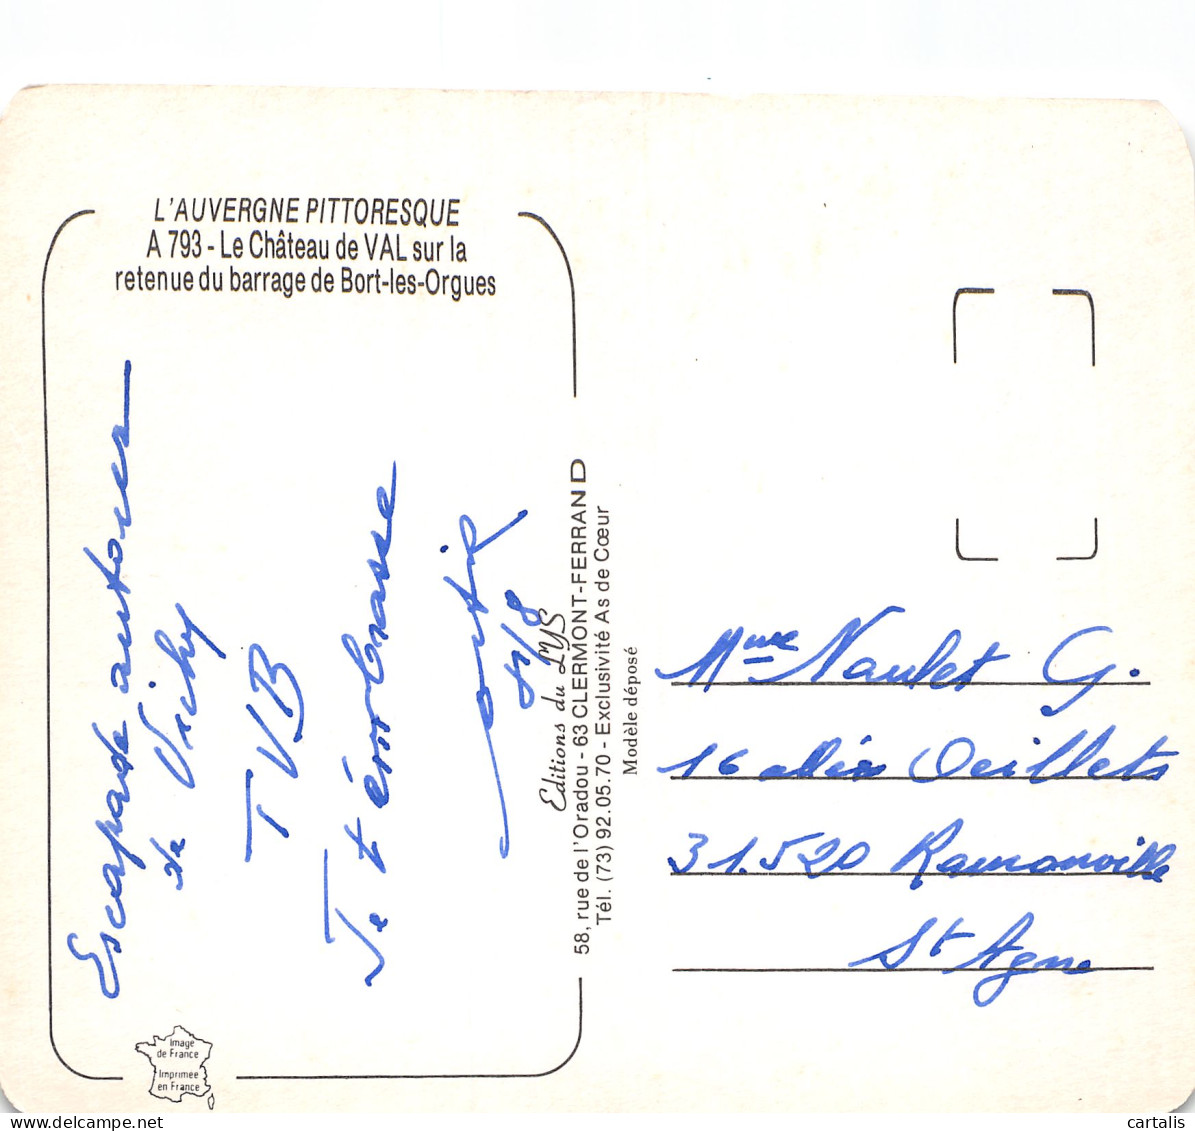 L'AUVERGNE PITTORESQUE
A 793 - Le Château de VAL sur la
retenue du barrage de Bort-les-Orgues
Escapade autour
de Vichy
TVB
Je t'embrasse
Editions du LYS
58, rue de l'Oradou - 63 CLERMONT-FERRAND
Tél. (73) 92.05.70 - Exclusivité As de Cœur
Modèle déposé
Mme Naulet G.
16 allée Oeillets
31.520 Ramonville
St Agne
Image
de France
Imprimée
en France
cartalis